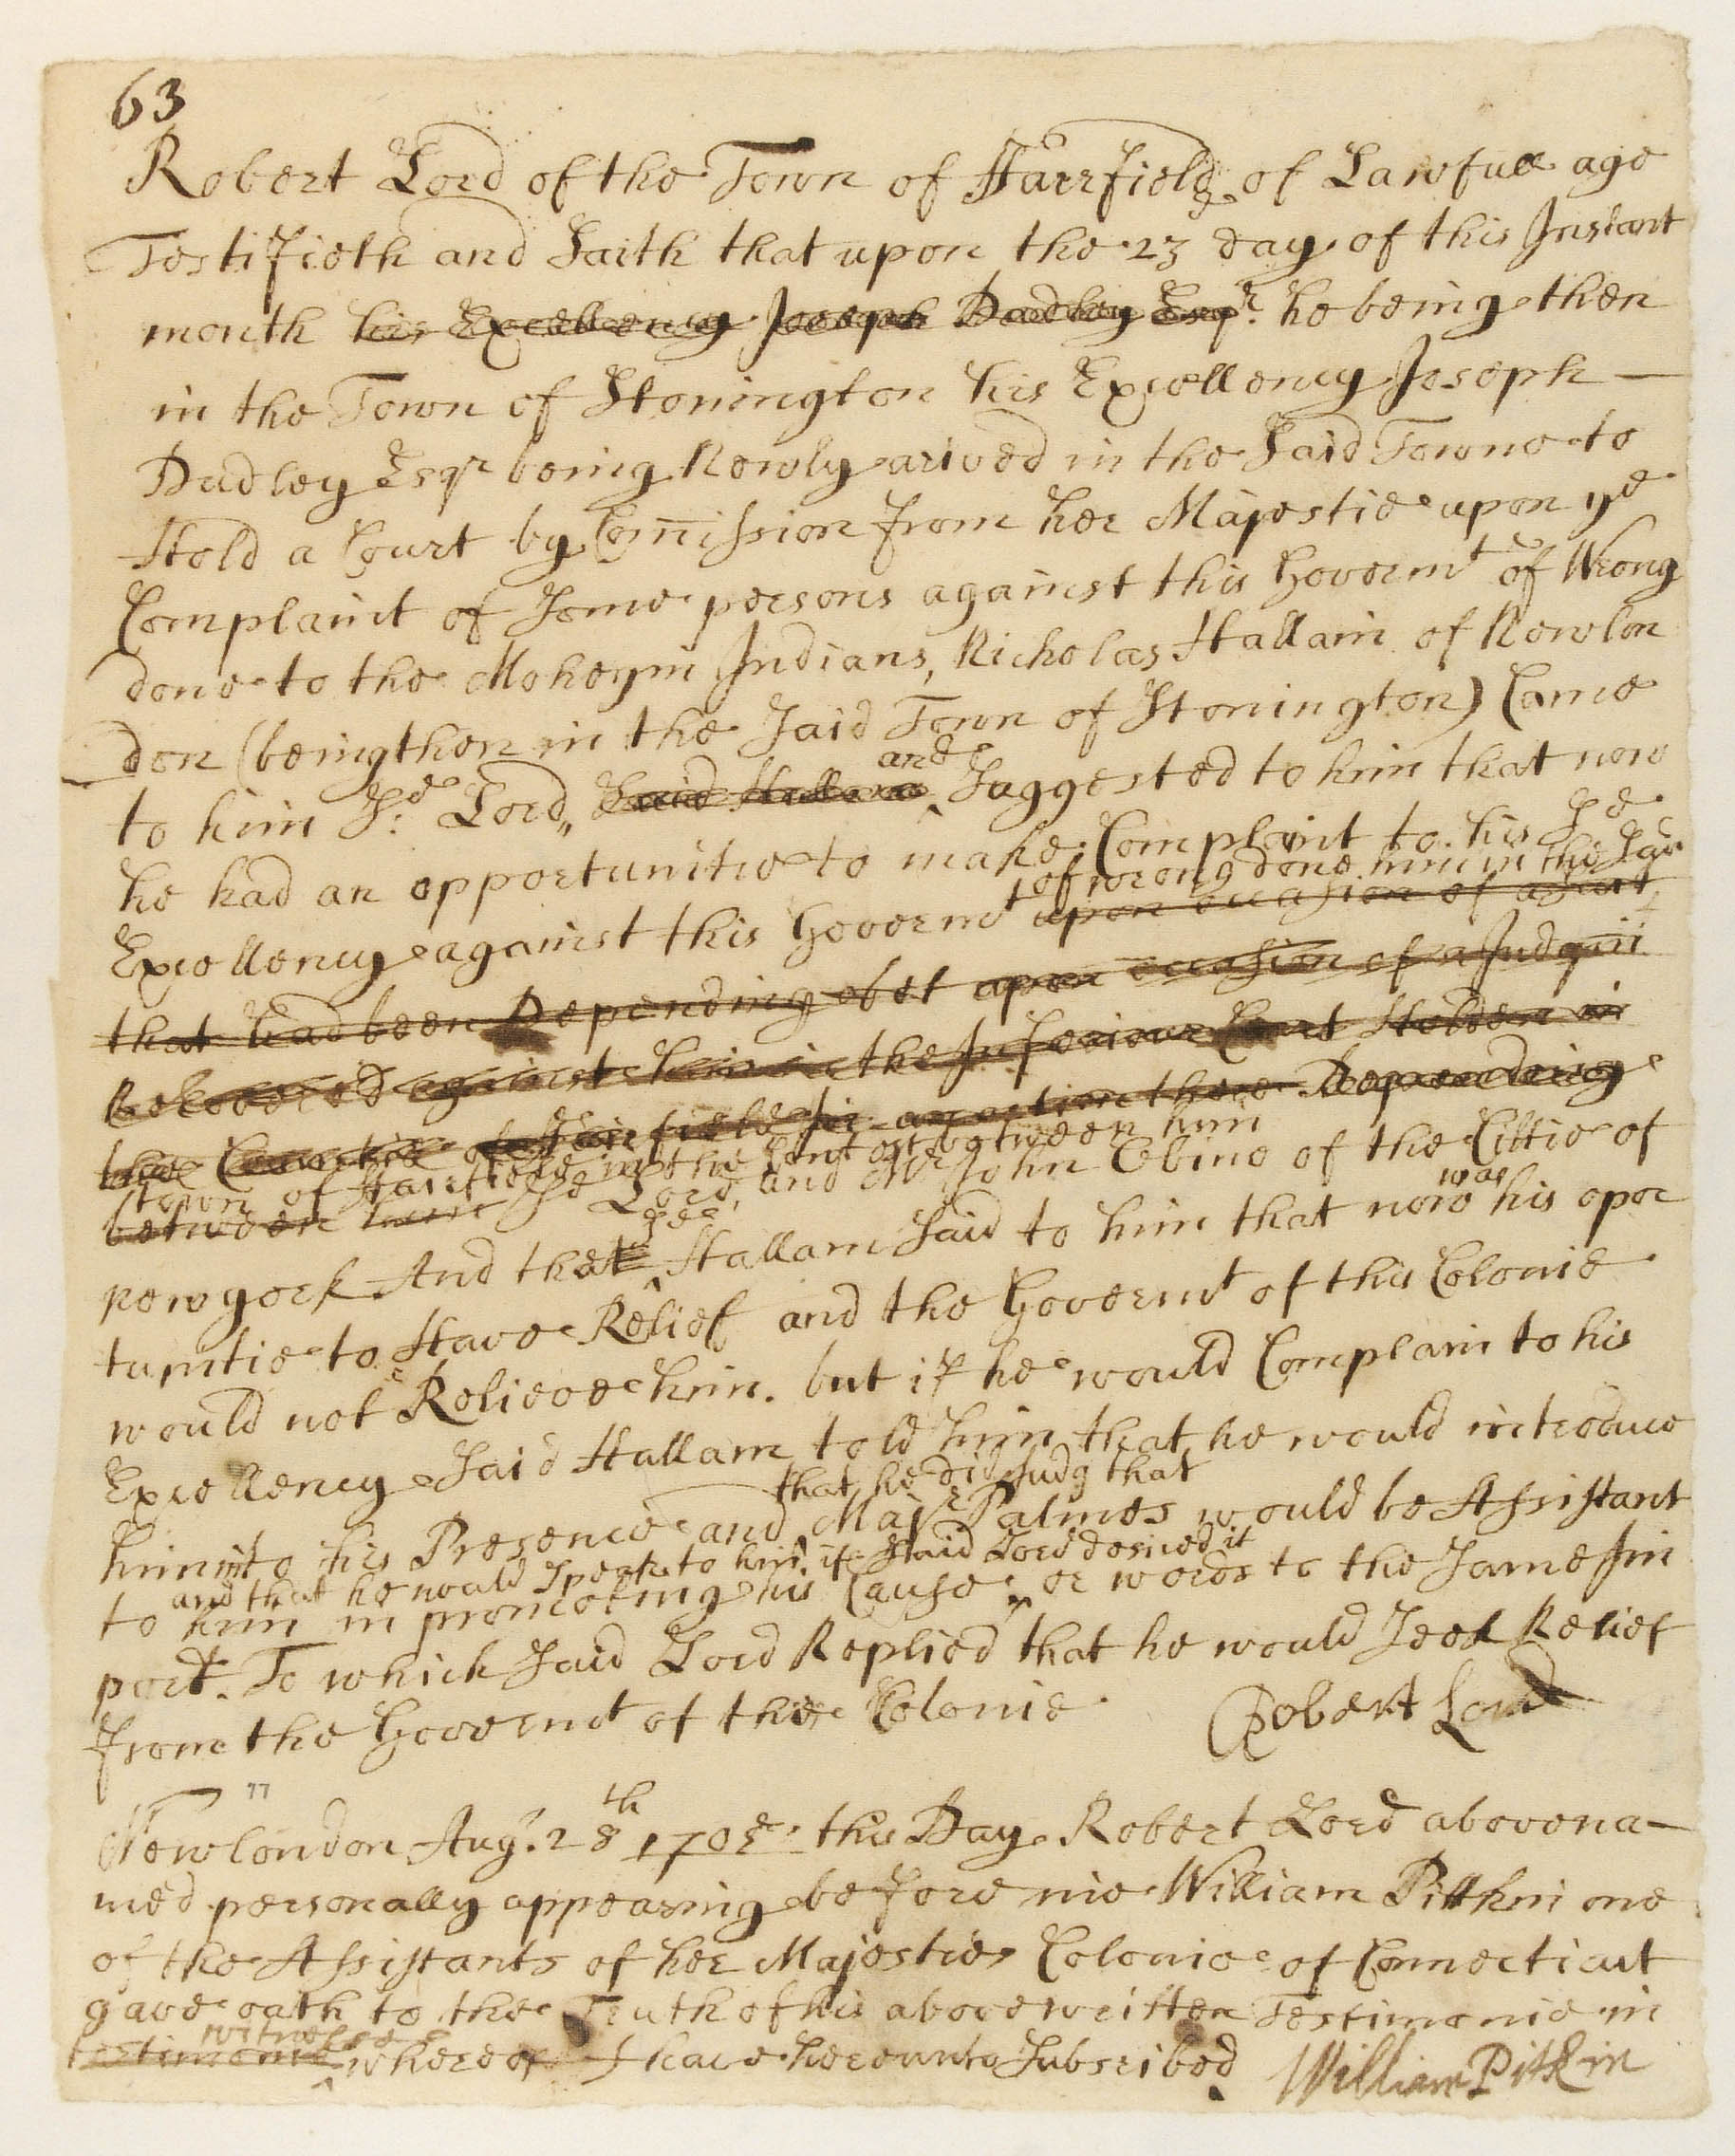 63
Robert Lord of the Town of Fairfield of Lawfull age
Testifieth and Saith that upon the 23 day of this Instant
month his Excellency Joseph Dudley Esqr. he being then
in the Town of Stonington his Excellency Joseph —
Dudley Esqr being Newly arived in the Said Towne to
Hold a Court by Comission from her Majestie upon ye
Complaint of Some persons against this Goverm^t of Wrong
done to the Moheyin Indians, Nicholas Hallam of Newlon
don (being then in the Said Town of Stonington) Came
and
to him S^d: Lord, Said Hallam ^ Suggested to him that now
he had an opportunitie to make Complaint to his
of wrong done him in the
Excellency against this Goverm^t upon occasion of a
that had been Depending obet upon occasion of a Judgmt
Rekovered against him in the Inferiour Court Holden in
the Countie of Fairfield in an action there Depending
town of Fairfield in the Contest between him
between him S^d Lord, and Mr John Obine of the Cittie of
newyork And that ^ Hallam Said to him that now was his opor
tunitie to Have Relief and the Goverm^t of this Colonie
would not Relieve him. but if he would Complain to his
Excellency Said Hallam told him that he would introduce
that he did Judg that
him into his Presence and ^ Majr Palmes would be Assistant
and that he would Speak to him if Said Lord desired it
to him in promoting his Cause ^ or words to the Same Im
port. To which Said Lord Replied that he would Seek Relief
from the Goverm^t of this Colonie
Robert Lord
Newlondon Aug^t. 28^th 1705 this Day Robert Lord abovena—
med personally appearing before me William Pittkin one
of the Assistants of her Majesties Colonie of Connecticut
gave oath to the Truth of his above written Testimonie in
witnesse
testimonie ^ whereof I have hereunto Subscribed
William Pitkin